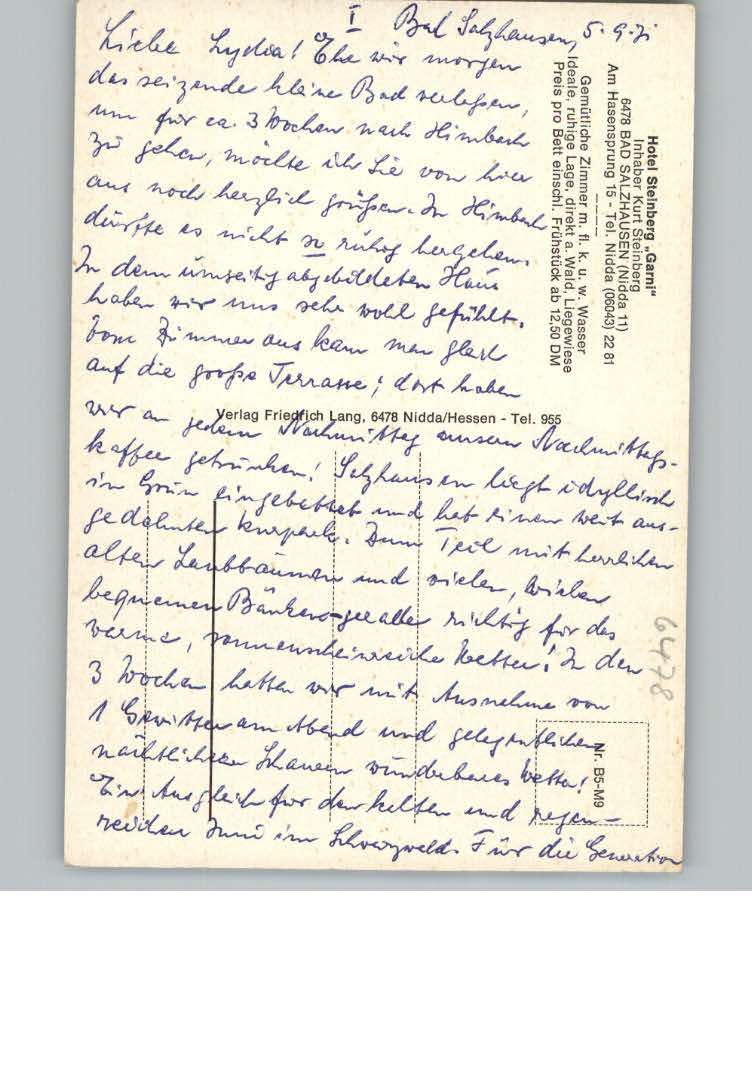 I
Bad Salzhausen, 5.9.71
Liebe Lydia! Ehe wir morgen
das reizende kleine Bad verlassen,
um für ca. 3 Wochen nach Himbach
zu gehen, möchte ich Sie von hier
aus noch herzlich grüßen. In Himbach
dürfte es nicht so ruhig hergehen.
In dem umseitig abgebildeten Haus
haben wir uns sehr wohl gefühlt.
Vom Zimmer aus kam man gleich
auf die große Terrasse; dort haben
wir an jedem Nachmittag unsern Nachmittags-
kaffee getrunken! Salzhausen liegt idyllisch
in Grün eingebettet und hat einen weit aus-
gedehnten Kurpark. Zum Teil mit herrlichen
alten Laubbäumen und vielen, vielen
bequemen Bänken alles richtig für das
warme, sonnenscheinreiche Wetter! In den
3 Wochen hatten wir mit Ausnahme von
1 Gewitter am Abend und gelegentlichen
nächtlichen Schauern wunderbares Wetter!
Ein Ausgleich für den kalten und regen-
reichen Juni im Schwarzwald. Für die Generation
Hotel Steinberg „Garni“
Inhaber Kurt Steinberg
6478 BAD SALZHAUSEN (Nidda 11)
Am Hasensprung 15 - Tel. Nidda (06043) 22 81
Gemütliche Zimmer m. fl. k. u. w. Wasser
Ideale, ruhige Lage, direkt a. Wald, Liegewiese
Preis pro Bett einschl. Frühstück ab 12,50 DM
Verlag Friedrich Lang, 6478 Nidda/Hessen - Tel. 955
6478
Nr. B5-M9